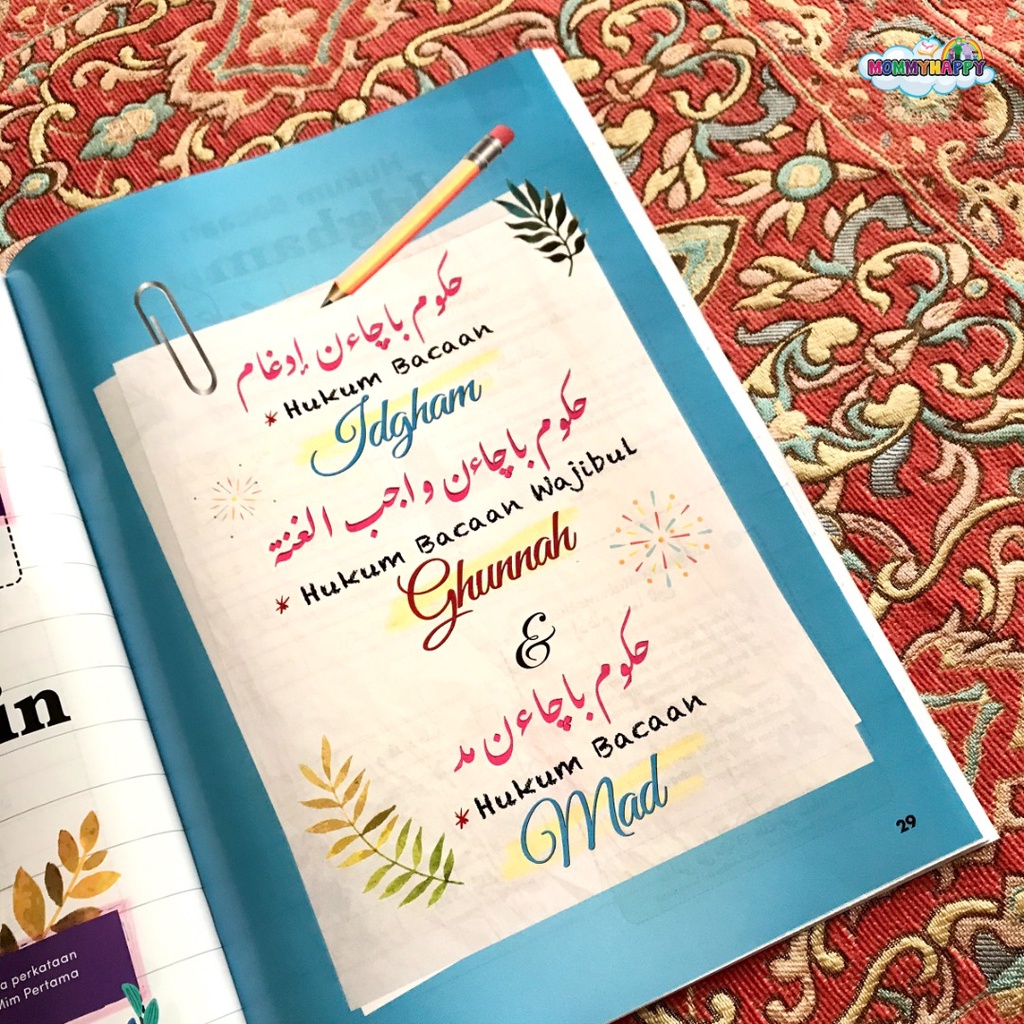 MOMMYHAPPY
حکوم باچاءن إدغام
* Hukum Bacaan
Idgham
حکوم باچاءن واجب الغنة
* Hukum Bacaan Wajibul
Ghunnah
&
حکوم باچاءن مد
* Hukum Bacaan
Mad
29
in
a perkataan
Mim Pertama